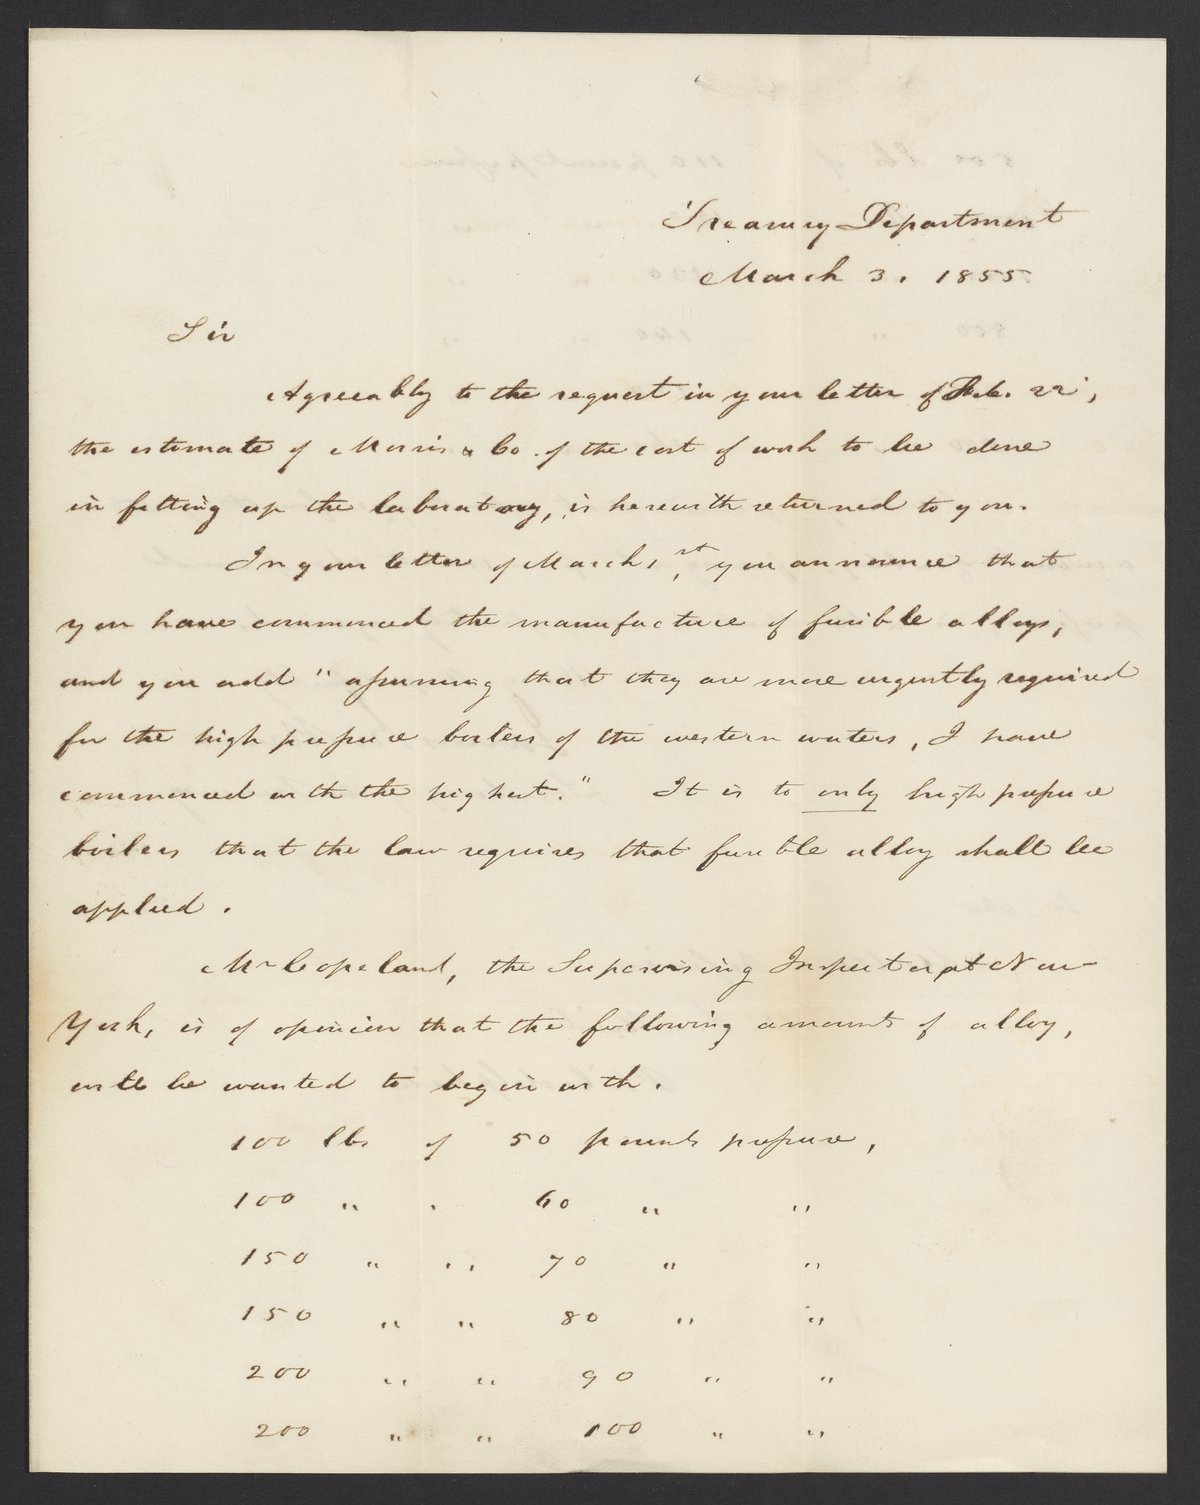 Treasury Department
March 3. 1855
Sir
Agreeably to the request in your letter of Feb. 22,
the estimate of Morris & Co. of the cost of work to be done
in fitting up the laboratory, is herewith returned to you.
In your letter of March 1st, you announce that
you have commenced the manufacture of fusible alloys,
and you add "assuming that they are more urgently required
for the high pressure boilers of the western waters, I have
commenced with the highest." It is to only high pressure
boilers that the law requires that fusible alloy shall be
applied.
Mr Copeland, the Supervising Inspector at New
York, is of opinion that the following amounts of alloy,
will be wanted to begin with.
100 lbs of 50 pounds pressure,
100 " " 60 " "
150 " " 70 " "
150 " " 80 " "
200 " " 90 " "
200 " " 100 " "